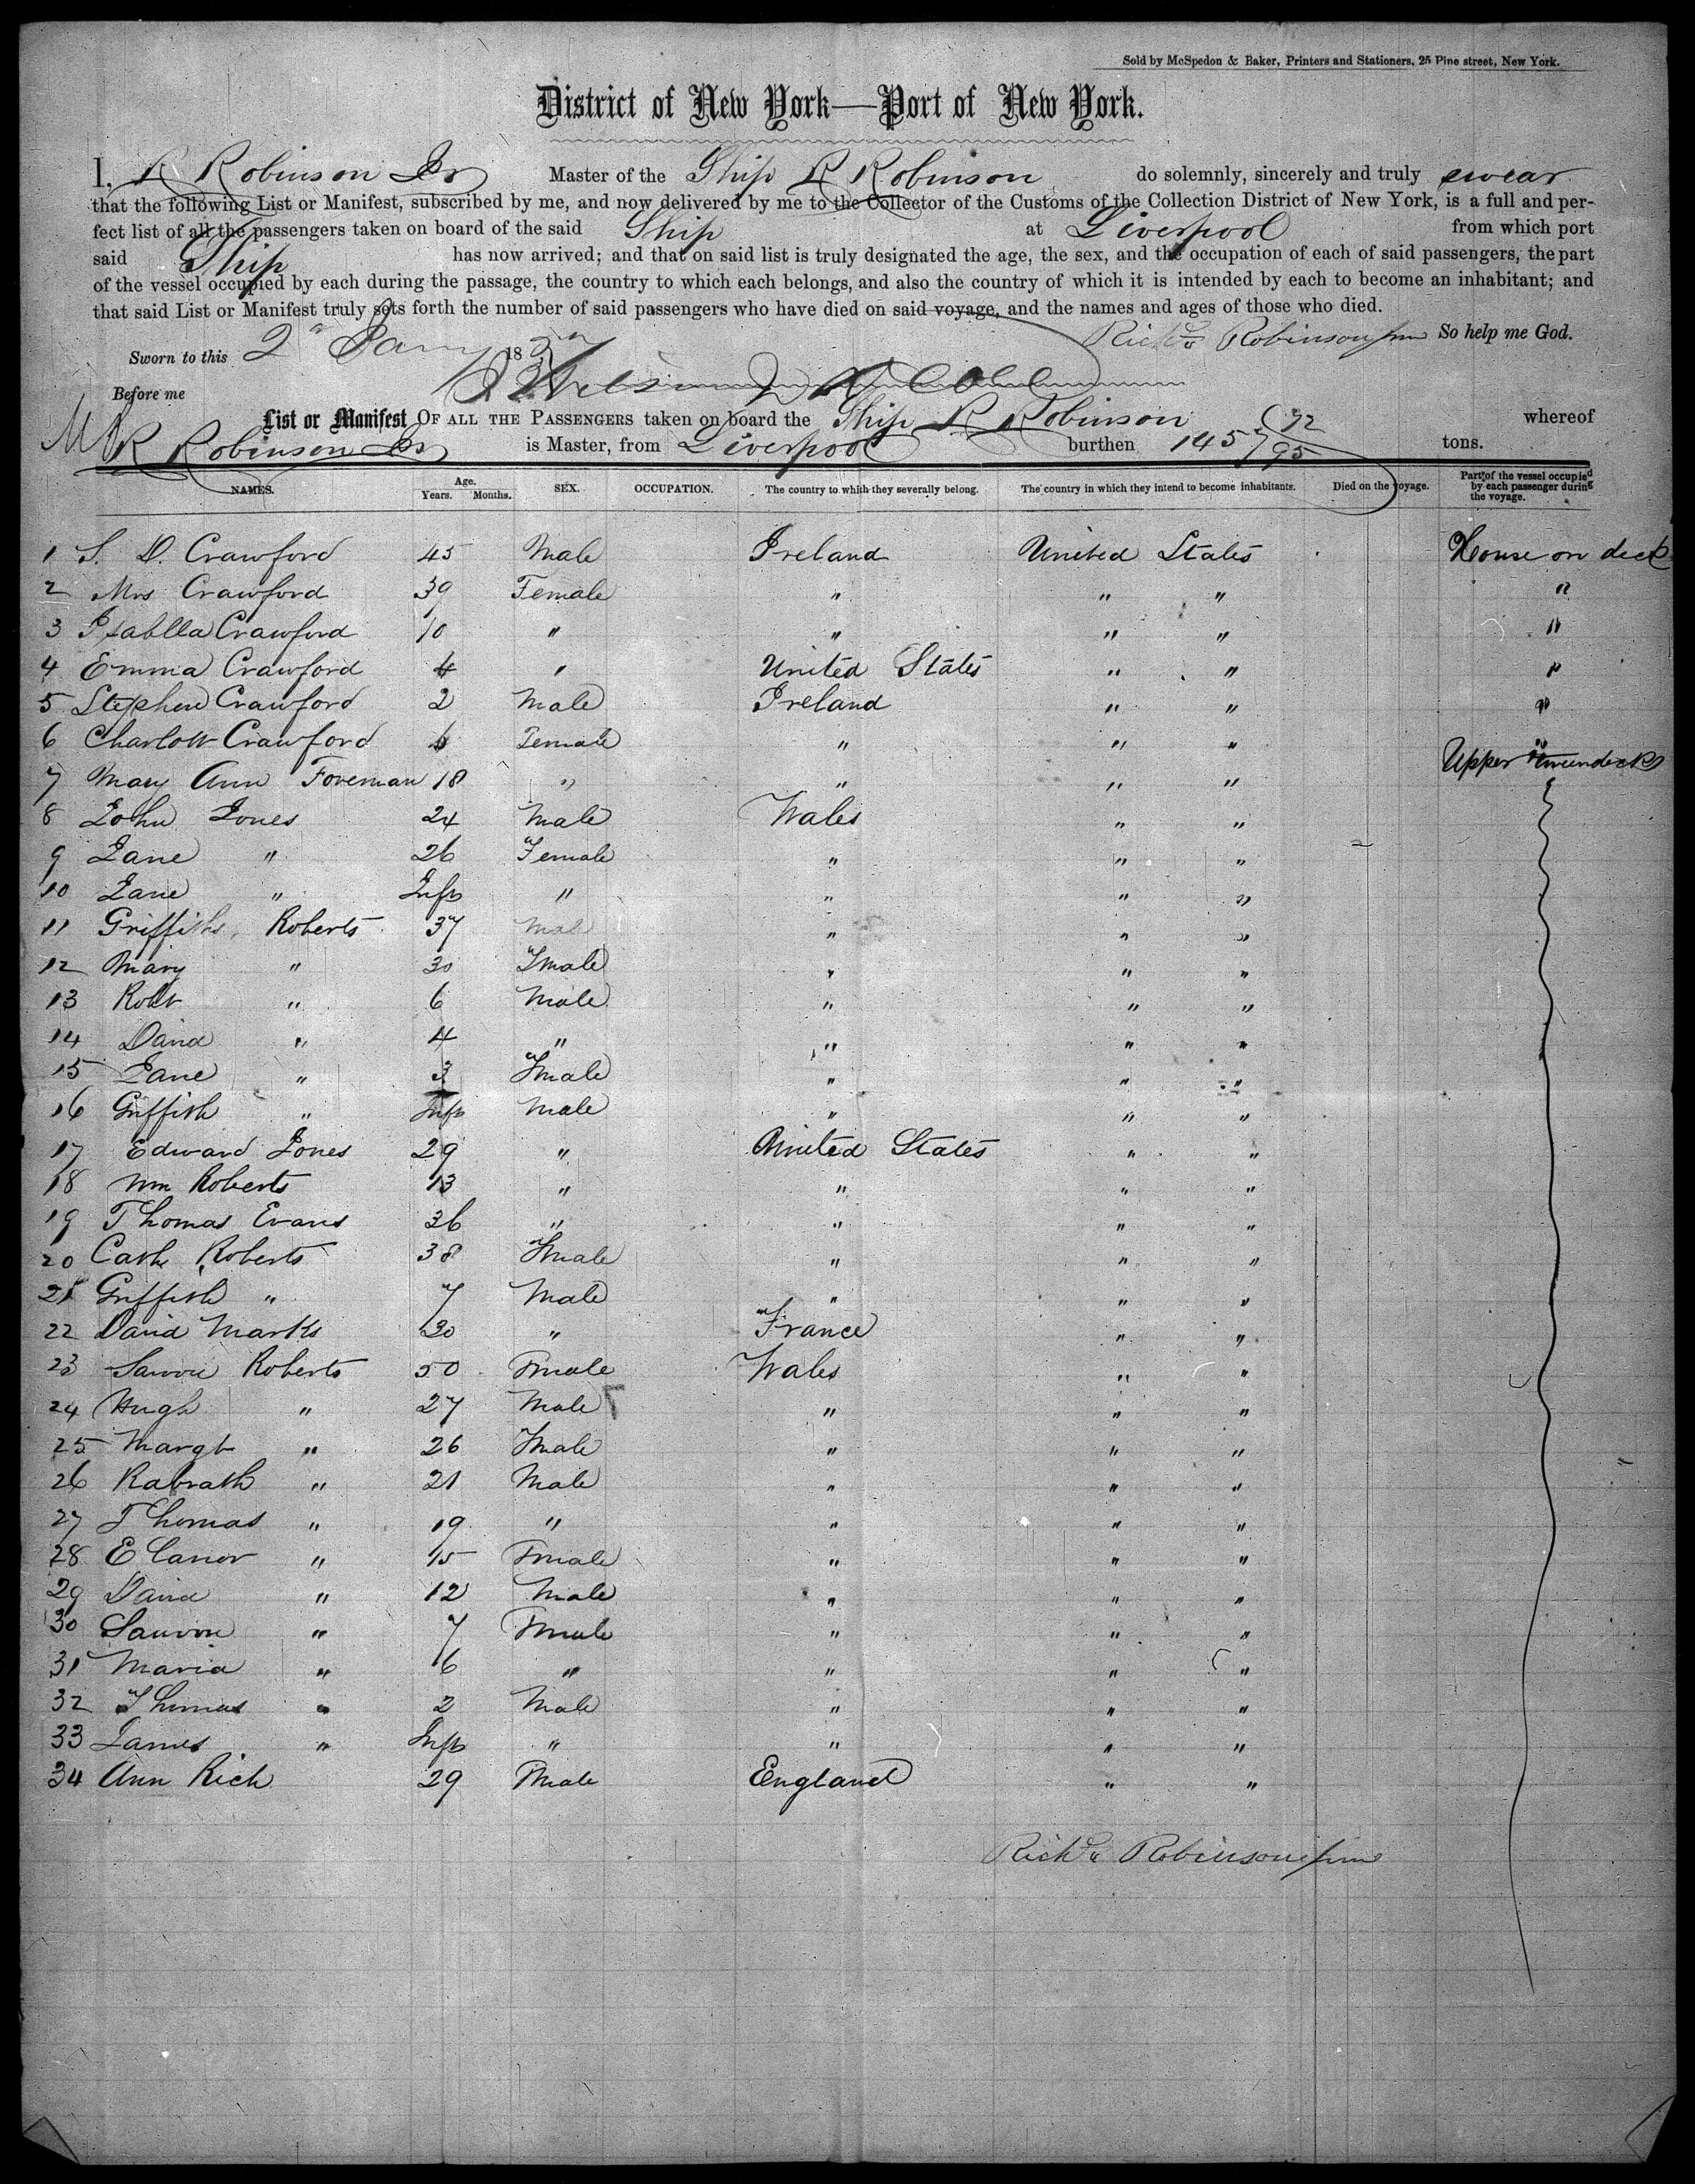 Sold by McSpedon & Baker, Printers and Stationers, 25 Pine street, New York.
District of New York—Port of New York.
I, R Robinson Jr Master of the Ship R Robinson do solemnly, sincerely and truly swear
that the following List or Manifest, subscribed by me, and now delivered by me to the Collector of the Customs of the Collection District of New York, is a full and per-
fect list of all the passengers taken on board of the said Ship at Liverpool from which port
said Ship has now arrived; and that on said list is truly designated the age, the sex, and the occupation of each of said passengers, the part
of the vessel occupied by each during the passage, the country to which each belongs, and also the country of which it is intended by each to become an inhabitant; and
that said List or Manifest truly sets forth the number of said passengers who have died on said voyage, and the names and ages of those who died.
Richd Robinson jun So help me God.
Sworn to this 2 Jany 18
Before me
List or Manifest OF ALL THE PASSENGERS taken on board the Ship R Robinson whereof
R Robinson Jr is Master, from Liverpool burthen 1457 92/95 tons.
NAMES. Age. Years. Months. SEX. OCCUPATION. The country to which they severally belong. The country in which they intend to become inhabitants. Died on the voyage. Part of the vessel occupied by each passenger during the voyage.
1 S. D. Crawford 45 Male Ireland United States House on deck
2 Mrs Crawford 39 Female " " " "
3 Isablla Crawford 10 " " " " "
4 Emma Crawford 4 " United States " " "
5 Stephen Crawford 2 Male Ireland " " "
6 Charlott Crawford 6 Female " " " "
7 Mary Ann Foreman 18 " " " " Upper tweendecks
8 John Jones 24 Male Wales " "
9 Jane " 26 Female " " "
10 Jane " Inft " " " "
11 Griffiths Roberts 37 Male " " "
12 Mary " 30 Fmale " " "
13 Robt " 6 Male " " "
14 David " 4 " " " "
15 Jane " 3 Fmale " " "
16 Griffith " Inft Male " " "
17 Edward Jones 29 " United States " "
18 Wm Roberts 13 " " " "
19 Thomas Evans 36 " " " "
20 Cath Roberts 38 Fmale " " "
21 Griffith " 7 Male " " "
22 David Marks 30 " France " "
23 Roberts 50 Fmale Wales " "
24 Hugh " 27 Male " " "
25 Margt " 26 Fmale " " "
26 Rabrath " 21 Male " " "
27 Thomas " 19 " " " "
28 Elanor " 15 Fmale " " "
29 David " 12 Male " " "
30 " 7 Fmale " " "
31 Maria " 6 " " " "
32 Thomas " 2 Male " " "
33 James " Inft " " " "
34 Ann Rich 29 Fmale England " "
Richd Robinson jun